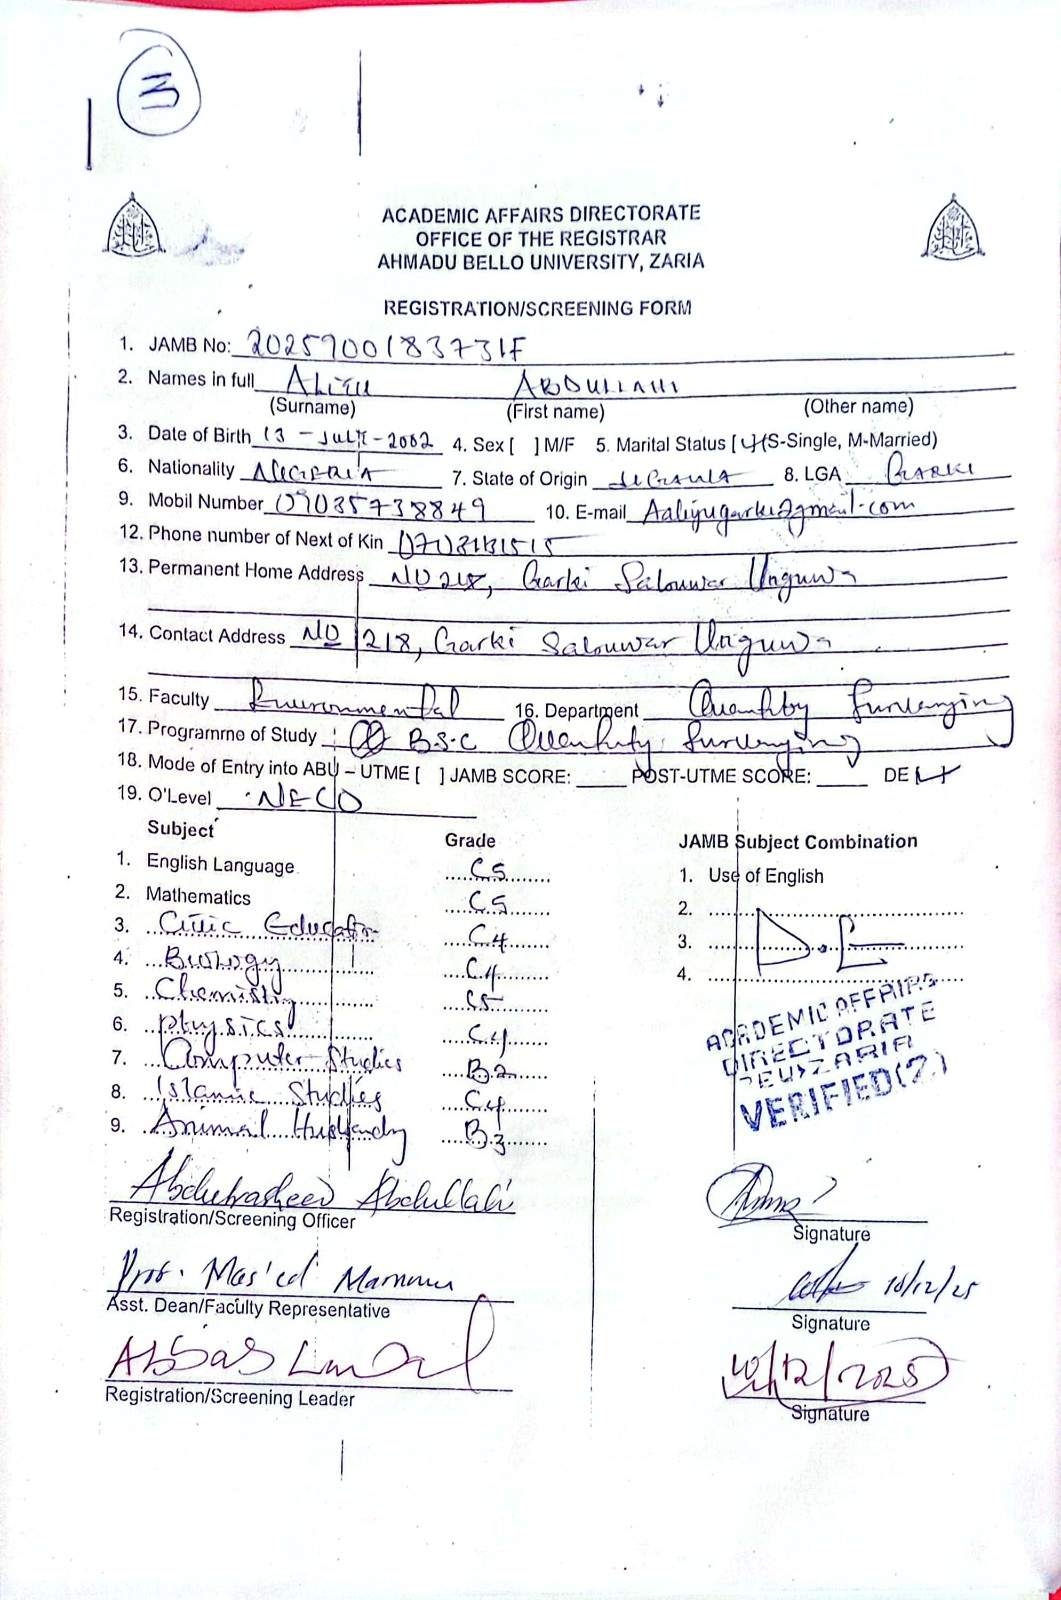 3
ACADEMIC AFFAIRS DIRECTORATE
OFFICE OF THE REGISTRAR
AHMADU BELLO UNIVERSITY, ZARIA
REGISTRATION/SCREENING FORM
1. JAMB No: 202590018373IF
2. Names in full ALIYU ABDULLAHI
(Surname) (First name) (Other name)
3. Date of Birth 13 - JULY - 2002 4. Sex [ ] M/F 5. Marital Status [ ] (S-Single, M-Married)
6. Nationality NIGERIA 7. State of Origin JIGAWA 8. LGA GARKI
9. Mobil Number 09035738849 10. E-mail
12. Phone number of Next of Kin
13. Permanent Home Address NO 218, Garki Salouwar Unguwa
14. Contact Address NO 218, Garki Salouwar Unguwa
15. Faculty Environmental 16. Department Quantity Surveying
17. Programme of Study B.S.C Quantity Surveying
18. Mode of Entry into ABU – UTME [ ] JAMB SCORE: POST-UTME SCORE: DE
19. O'Level NECO
Subject Grade JAMB Subject Combination
1. English Language C5 1. Use of English
2. Mathematics C5 2.
3. Civic Education C4 3. D.E
4. Biology C4 4.
5. Chemistry C5
6. Physics C4
7. Computer Studies B2
8. Islamic Studies C4
9. Animal Husbandry B3
ACADEMIC AFFAIRS
DIRECTORATE
ZARIA
VERIFIED (2)
Abdulrasheed Abdullahi
Registration/Screening Officer Signature
Prof. Mas'ud Mamman 10/12/25
Asst. Dean/Faculty Representative Signature
ABBAS 10/12/2025
Registration/Screening Leader Signature